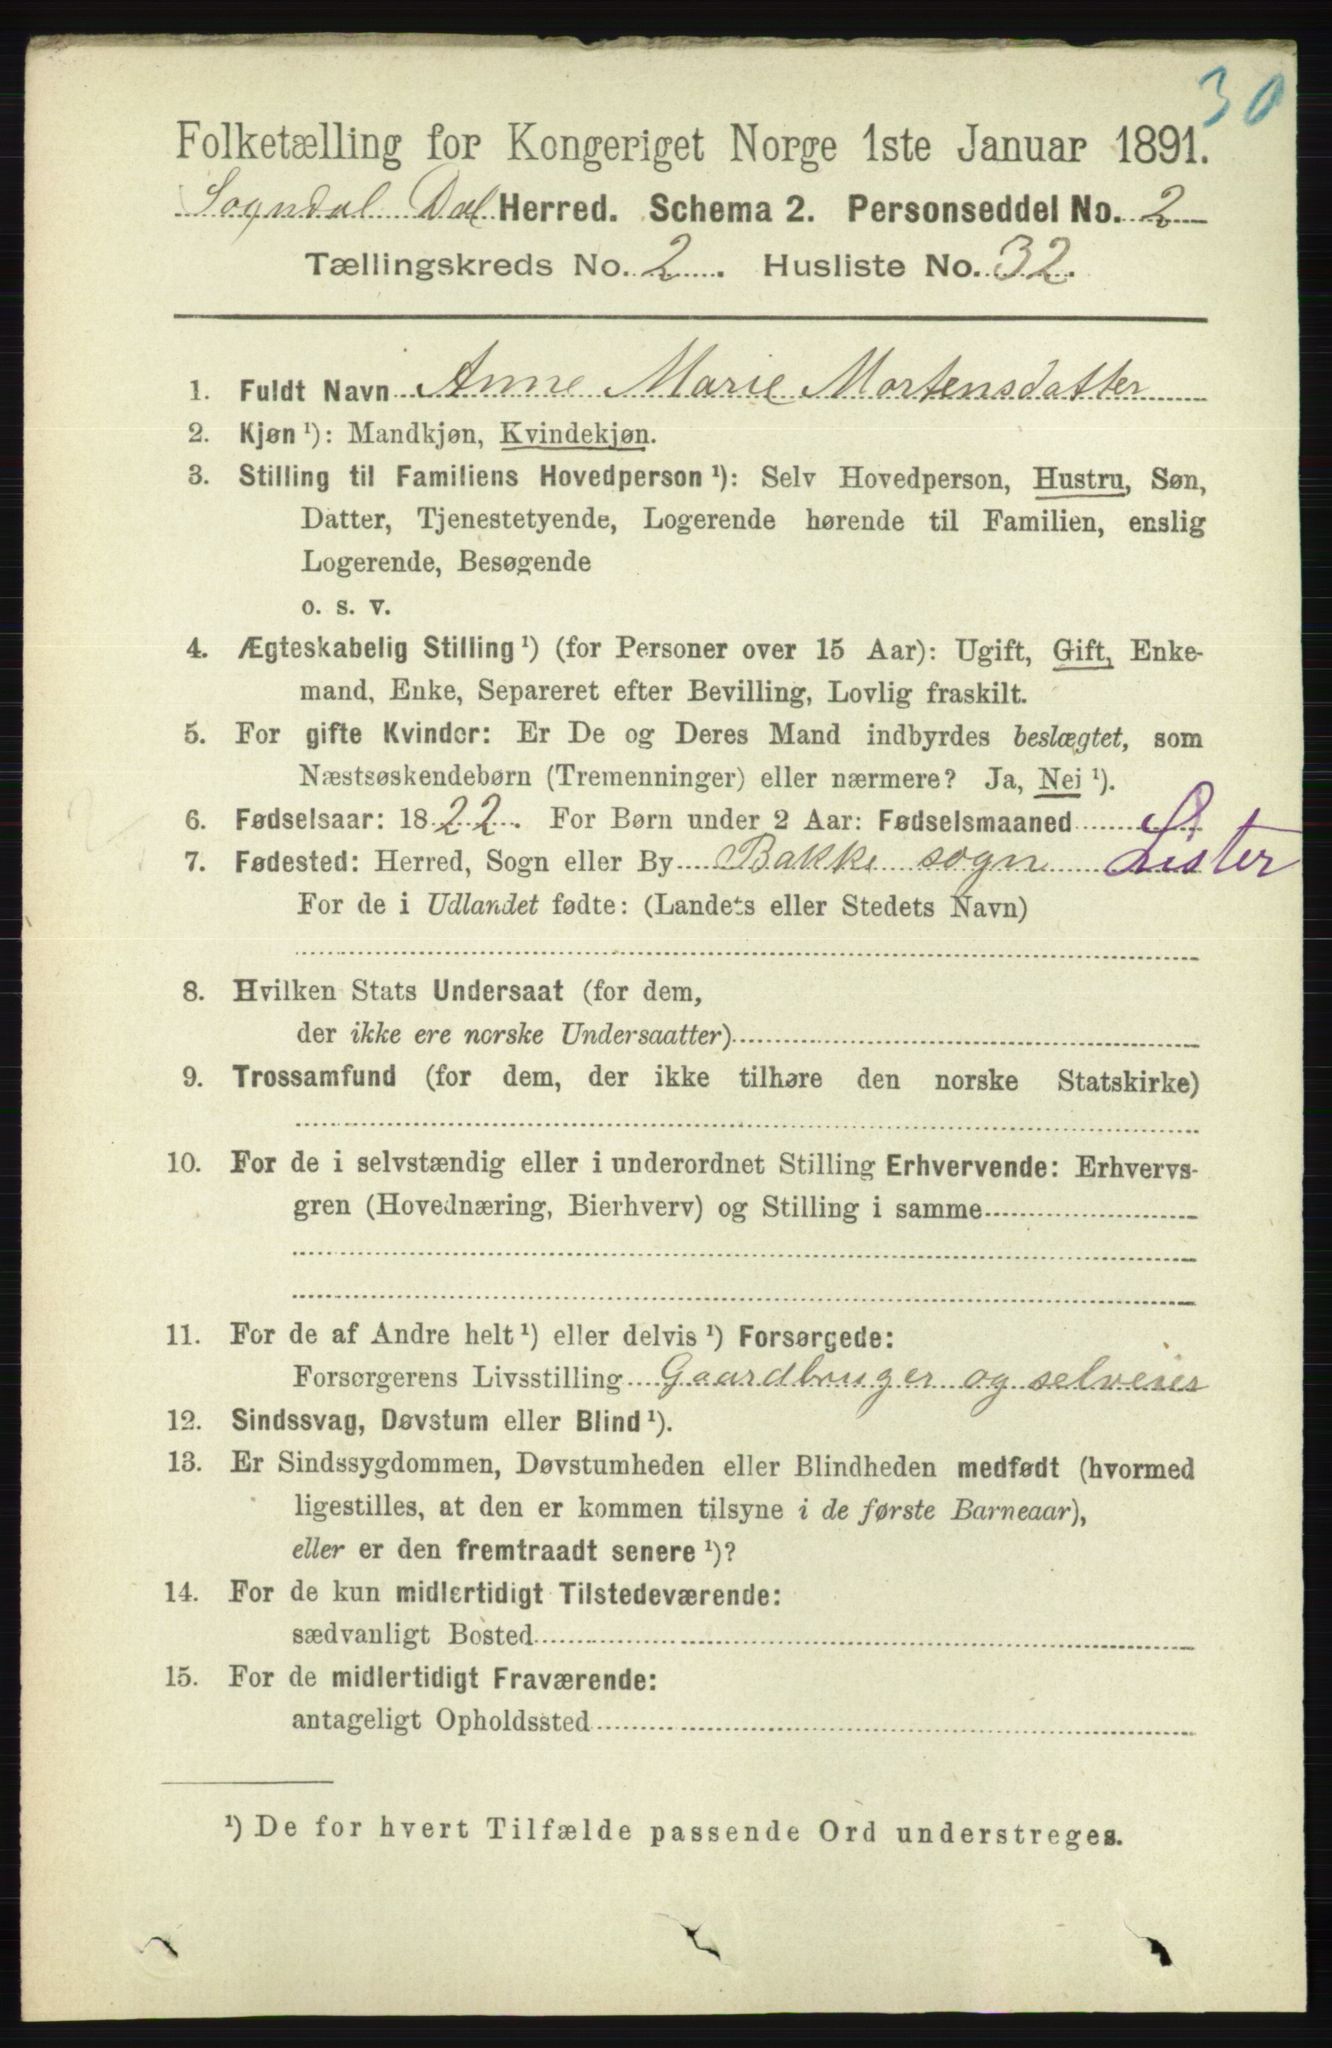 30
Folketælling for Kongeriget Norge 1ste Januar 1891.
Sogndal Dal Herred. Schema 2. Personseddel No. 2
Tællingskreds No. 2. Husliste No. 32.
1. Fuldt Navn Anne Marie Mortensdatter
2. Kjøn ¹): Mandkjøn, Kvindekjøn.
3. Stilling til Familiens Hovedperson ¹): Selv Hovedperson, Hustru, Søn,
Datter, Tjenestetyende, Logerende hørende til Familien, enslig
Logerende, Besøgende
o. s. v.
4. Ægteskabelig Stilling ¹) (for Personer over 15 Aar): Ugift, Gift, Enke-
mand, Enke, Separeret efter Bevilling, Lovlig fraskilt.
5. For gifte Kvinder: Er De og Deres Mand indbyrdes beslægtet, som
Næstsøskendebørn (Tremenninger) eller nærmere? Ja, Nei ¹).
6. Fødselsaar: 1822. For Børn under 2 Aar: Fødselsmaaned
7. Fødested: Herred, Sogn eller By Bakke sogn Lister
For de i Udlandet fødte: (Landets eller Stedets Navn)
8. Hvilken Stats Undersaat (for dem,
der ikke ere norske Undersaatter)
9. Trossamfund (for dem, der ikke tilhøre den norske Statskirke)
10. For de i selvstændig eller i underordnet Stilling Erhvervende: Erhvervs-
gren (Hovednæring, Bierhverv) og Stilling i samme
11. For de af Andre helt ¹) eller delvis ¹) Forsørgede:
Forsørgerens Livsstilling Gaardbruger og selveier
12. Sindssvag, Døvstum eller Blind ¹).
13. Er Sindssygdommen, Døvstumheden eller Blindheden medfødt (hvormed
ligestilles, at den er kommen tilsyne i de første Barneaar),
eller er den fremtraadt senere ¹)?
14. For de kun midlertidigt Tilstedeværende:
sædvanligt Bosted
15. For de midlertidigt Fraværende:
antageligt Opholdssted
¹) De for hvert Tilfælde passende Ord understreges.